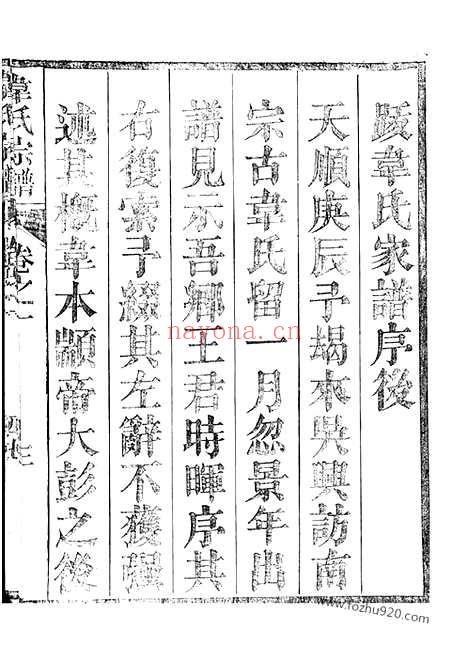 跋韋氏家譜序後
天順庚辰予朅來吳興訪南
宗古韋氏留一月忽景年出
譜見示吾鄉王君時暉序其
右復索予綴其左辭不獲彊
述其概韋本顓帝大彭之後
韋氏宗譜 卷之一
nayona.cn
www.fozhu920.com